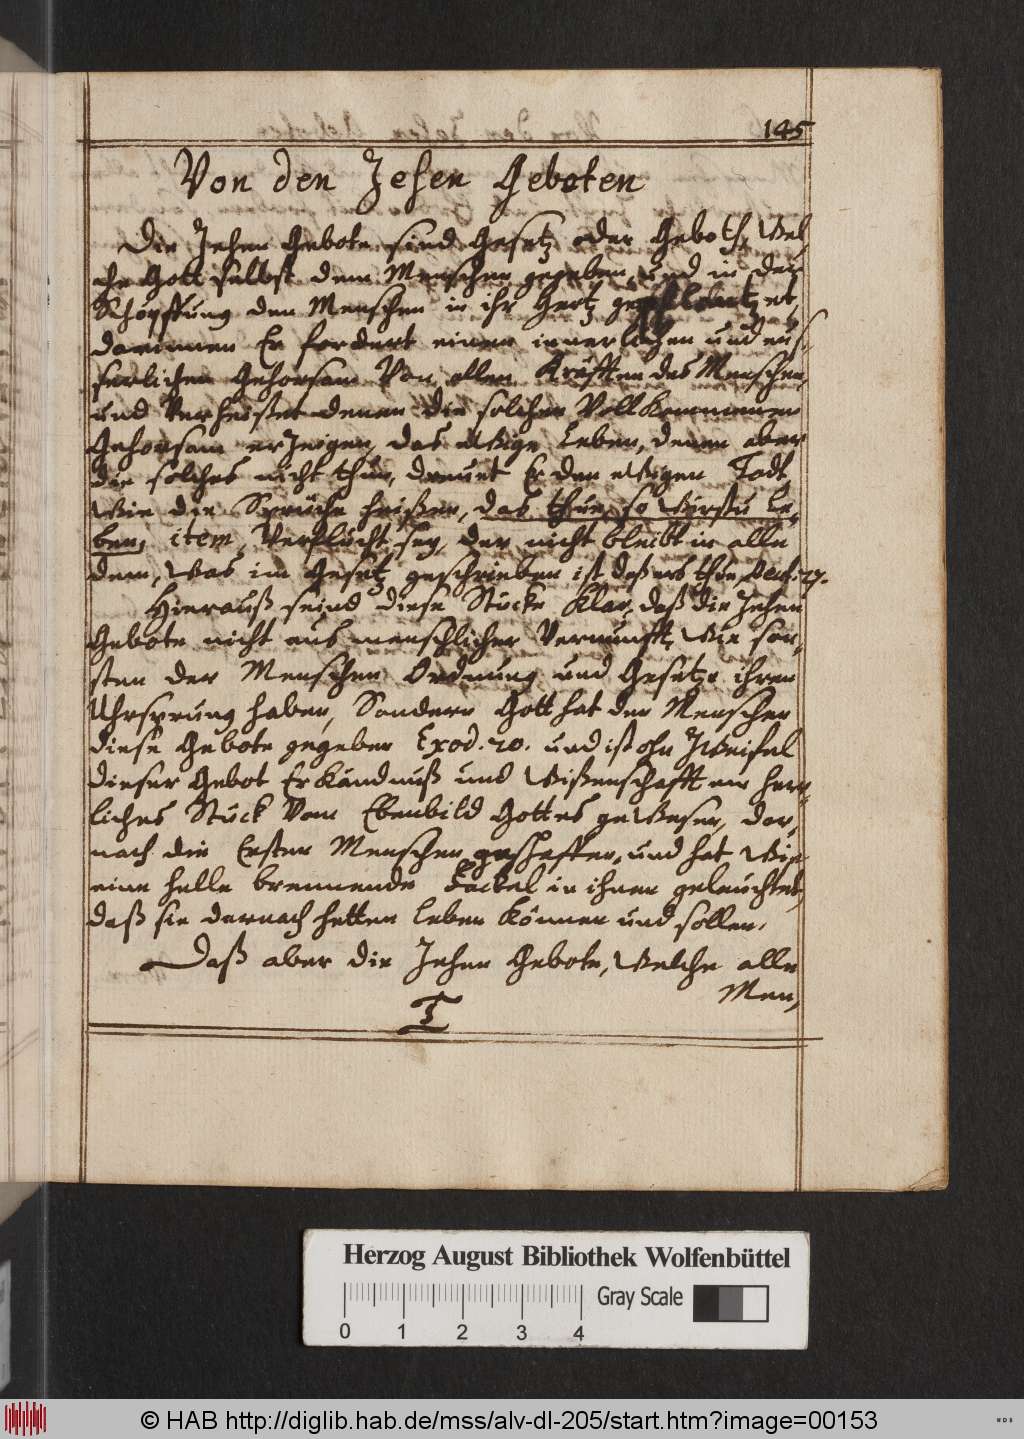 145
Von den Zehen Geboten
Die Zehen Gebote sind Gesetz oder Geboth, Wel,
che Gott selbst dem Menschen gegeben, und in der
Schöpffung den Menschen in ihr Hertz gepflantzet,
darinnen Er fordert einen innerlichen und eus,
serlichen Gehorsam Von allen Kräfften des Menschen,
und Verheißet denen die solchen Vollkommenen
Gehorsam erzeigen, das eWige Leben, denen aber
die solches nicht thun, dreuet Er den eWigen Todt,
Wie die Sprüche heißen, das thue, so Wirstu le,
ben, item, Verflucht sey, der nicht bleibt in alle
dem, Was im Gesetz geschrieben ist daß ers thue Deut: 27.
Hierauß seind diese Stücke klar, daß die Zehen
Gebote nicht aus menschlicher Vernunfft, Wie son,
sten der Menschen Ordnung und Gesetze ihren
Uhrsprung haben, Sondern Gott hat den Menschen
diese Gebote gegeben Exod. 20. und ist ohn ZWeifel
dieser Gebot Erkändnuß und Wißenschafft ein herr,
liches Stück Vom Ebenbild Gottes geWesen, dar,
nach die Ersten Menschen geschaffen, und hat Wie
eine helle brennende Fackel in ihnen geleuchtet,
daß sie darnach hetten leben können und sollen.
Daß aber die Zehen Gebote, Welche alle
Men,
T
Herzog August Bibliothek Wolfenbüttel
Gray Scale
0 1 2 3 4
© HAB http://diglib.hab.de/mss/alv-dl-205/start.htm?image=00153